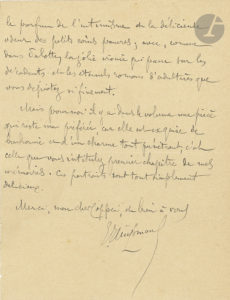 le parfum de l'intimisme de la délicieuse
odeur des petits coins pauvres ; avec, comme
dans la jolie ironie qui passe sur les
décadents et les éternels romans d'adultères que
vous dépistez si finement.
Mais pour moi il y a dans le volume une pièce
qui reste ma préférée car elle est exquise de
bonhomie et d'un charme tout pénétrant, c'est
celle que vous intitulez premier chapitre de mes
mémoires. Ces portraits sont tout simplement
délicieux.
Merci, mon cher Coppée, et bien à vous
Huysmans